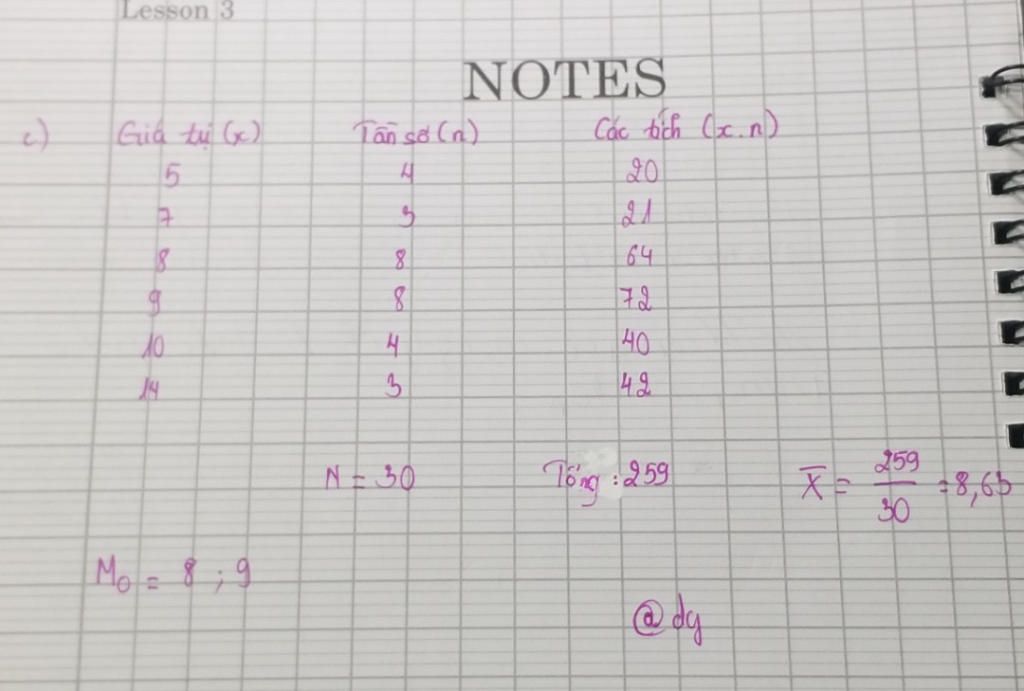 Lesson 3
NOTES
c) Giá tụ (x) Tần số (n) Các tích (x.n)
5 4 20
7 3 21
8 8 64
9 8 72
10 4 40
14 3 42
N = 30 Tổng : 259 X̄ = 259/30 = 8,63
M₀ = 8 ; 9
@dy